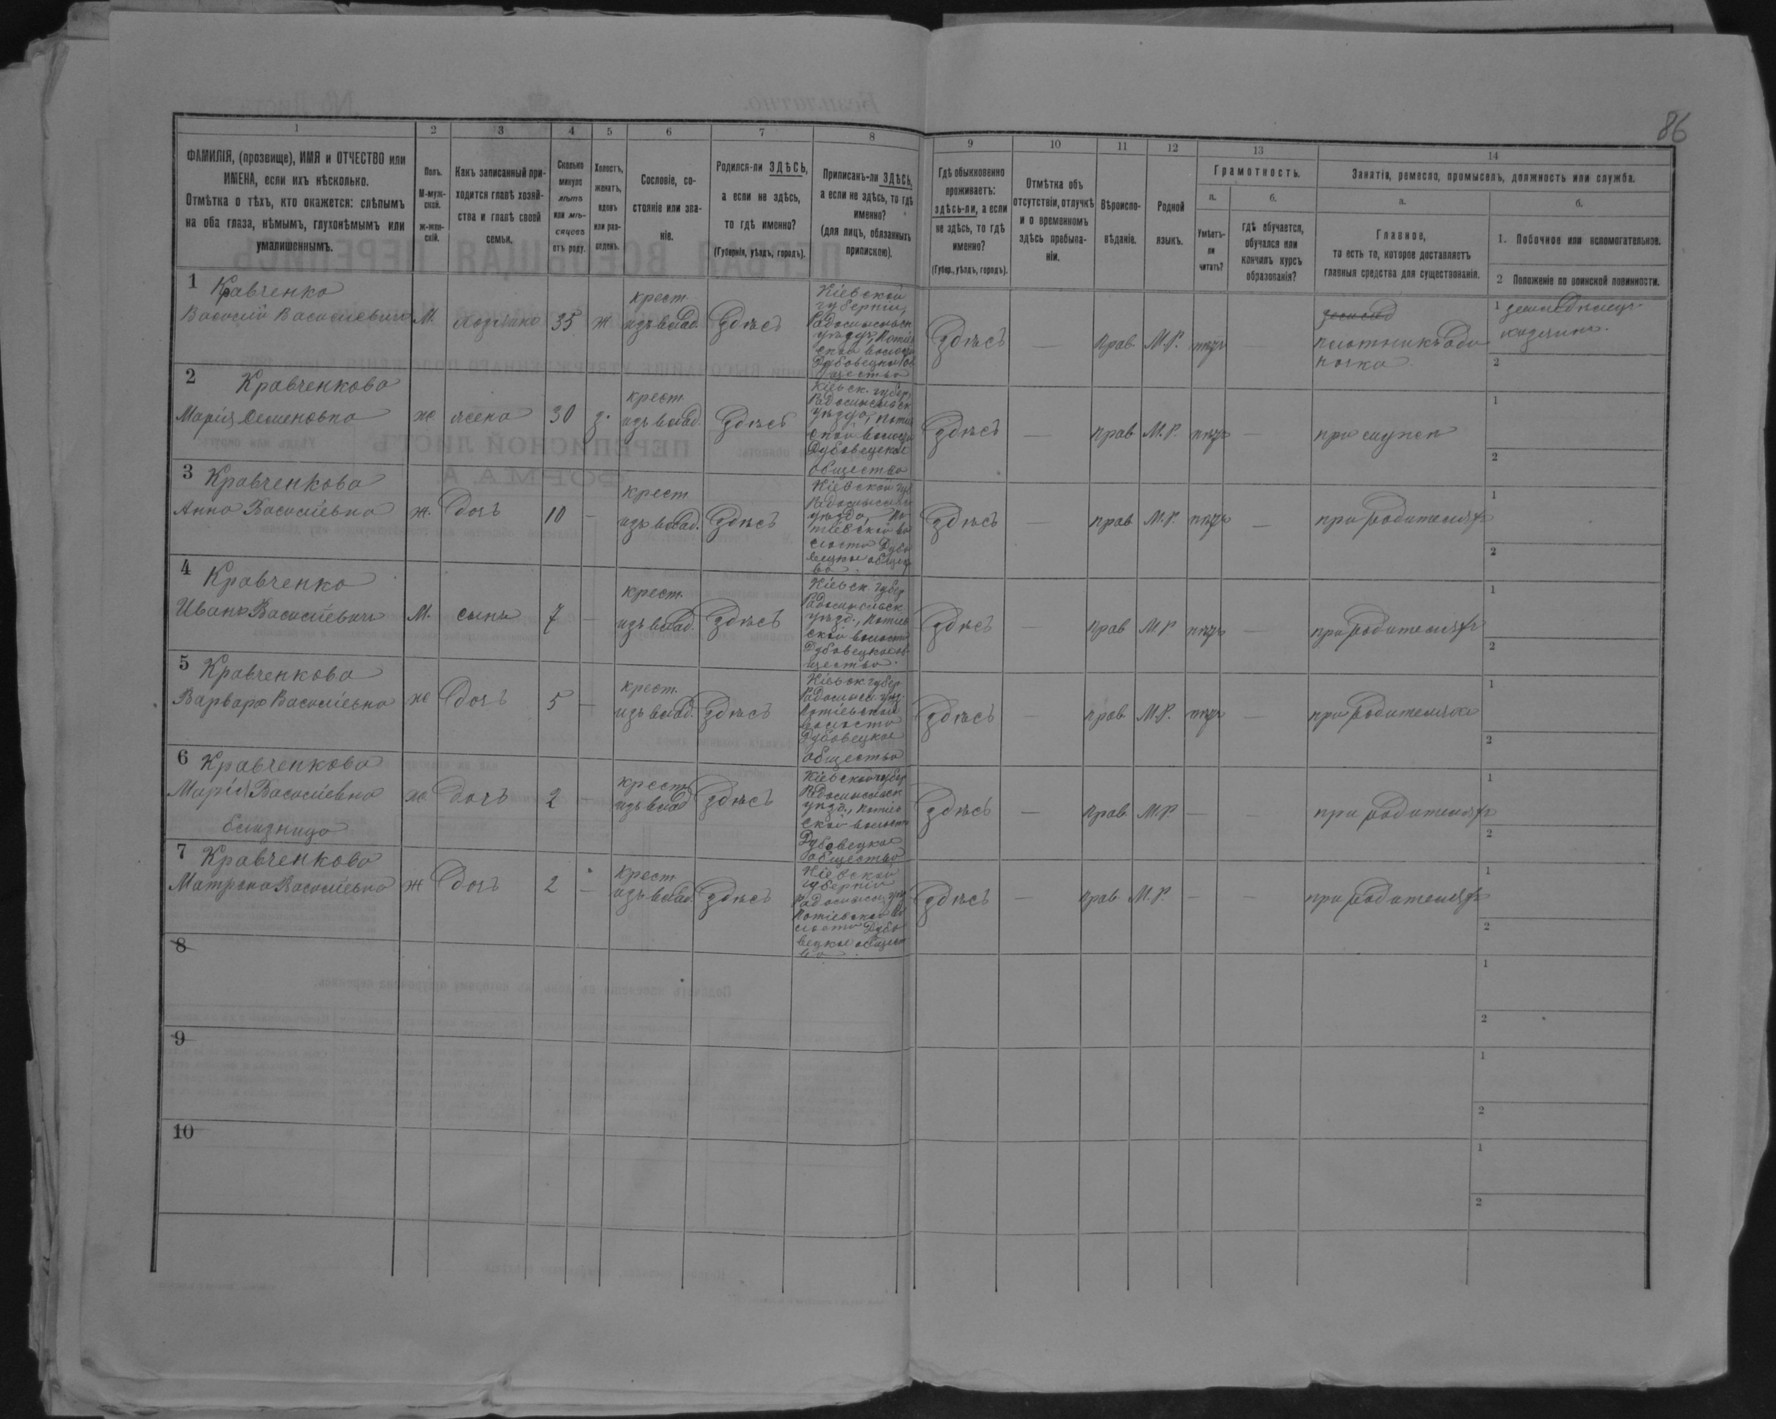 86
1 2 3 4 5 6 7 8 9 10 11 12 13 14
ФАМИЛІЯ, (прозвище), ИМЯ и ОТЧЕСТВО или
ИМЕНА, если ихъ нѣсколько.
Отмѣтка о тѣхъ, кто окажется: слѣпымъ
на оба глаза, нѣмымъ, глухонѣмымъ или
умалишеннымъ.
Полъ.
М-муж-
ской.
ж-жен-
скій.
Какъ записанный при-
ходится главѣ хозяй-
ства и главѣ своей
семьи.
Сколько
минуло
лѣтъ
или мѣ-
сяцевъ
отъ роду.
Холостъ,
женатъ,
вдовъ
или раз-
веденъ.
Сословіе, со-
стояніе или зва-
ніе.
Родился-ли ЗДѢСЬ,
а если не здѣсь,
то гдѣ именно?
(Губернія, уѣздъ, городъ).
Приписанъ-ли ЗДѢСЬ,
а если не здѣсь, то гдѣ
именно?
(для лицъ, обязанныхъ
припискою).
Гдѣ обыкновенно
проживаетъ:
здѣсь-ли, а если
не здѣсь, то гдѣ
именно?
(Губер., уѣздъ, городъ).
Отмѣтка объ
отсутствіи, отлучкѣ
и о временномъ
здѣсь пребыва-
ніи.
Вѣроиспо-
вѣданіе.
Родной
языкъ.
Грамотность.
а.
Умѣетъ-
ли
читать?
б.
Гдѣ обучается,
обучался или
кончилъ курсъ
образованія?
Занятія, ремесло, промыселъ, должность или служба.
а.
Главное,
то есть то, которое доставляетъ
главныя средства для существованія.
б.
1. Побочное или вспомогательное.
2 Положеніе по воинской повинности.
1 Кравченко
Василій Васильевичъ М хозяинъ 35 ж крест. изъ влад. здѣсь
Кіевской
губерніи,
Радомысльск.
уѣзда, Потіев
ской волости
Дубовецкое об
щество
здѣсь — прав М.Р. нѣтъ —
плотникъ
1
2
2 Кравченкова
Марія Семеновна ж жена 30 з. крест. изъ влад. здѣсь
Кіевск. губер.
Радомысльск
уѣзда, Потіев
ской волости
Дубовецкое
общество
здѣсь — прав М.Р. нѣтъ — при мужѣ
1
2
3 Кравченкова
Анна Васильевна ж. дочь 10 — крест. изъ влад. здѣсь
Кіевской губ.
Радомысльск
уѣзда, По
тіевской во
лости Дубо
вецкое общест
во
здѣсь — прав М.Р. нѣтъ — при родителяхъ
1
2
4 Кравченко
Иванъ Васильевичъ М. сынъ 7 — крест. изъ влад. здѣсь
Кіевск. губер
Радомысльск
уѣзд., Потіев
ской волости
Дубовецкое об
щество.
здѣсь — прав М.Р нѣтъ — при родителяхъ
1
2
5 Кравченкова
Варвара Васильевна ж дочь 5 — крест. изъ влад. здѣсь
Кіевск. губер
Радомысл. уѣз
Потіевской
волости
Дубовецкое
общество
здѣсь — прав М.Р. нѣтъ — при родителяхъ
1
2
6 Кравченкова
Марія Васильевна ж дочь 2 — крест. изъ влад здѣсь
близница
Кіевской губер
Радомысльск
уѣзд., Потіев
ской волости
Дубовецкое
общество
здѣсь — прав М.Р — — при родителяхъ
1
2
7 Кравченкова
Матрона Васильевна ж дочь 2 — крест. изъ влад. здѣсь
Кіевской
губерніи
Радомысл. уѣз
Потіевской во
лости Дубо
вецкое общест
во.
здѣсь — прав М.Р. — — при родителяхъ
1
2
8
1
2
9
1
2
10
1
2